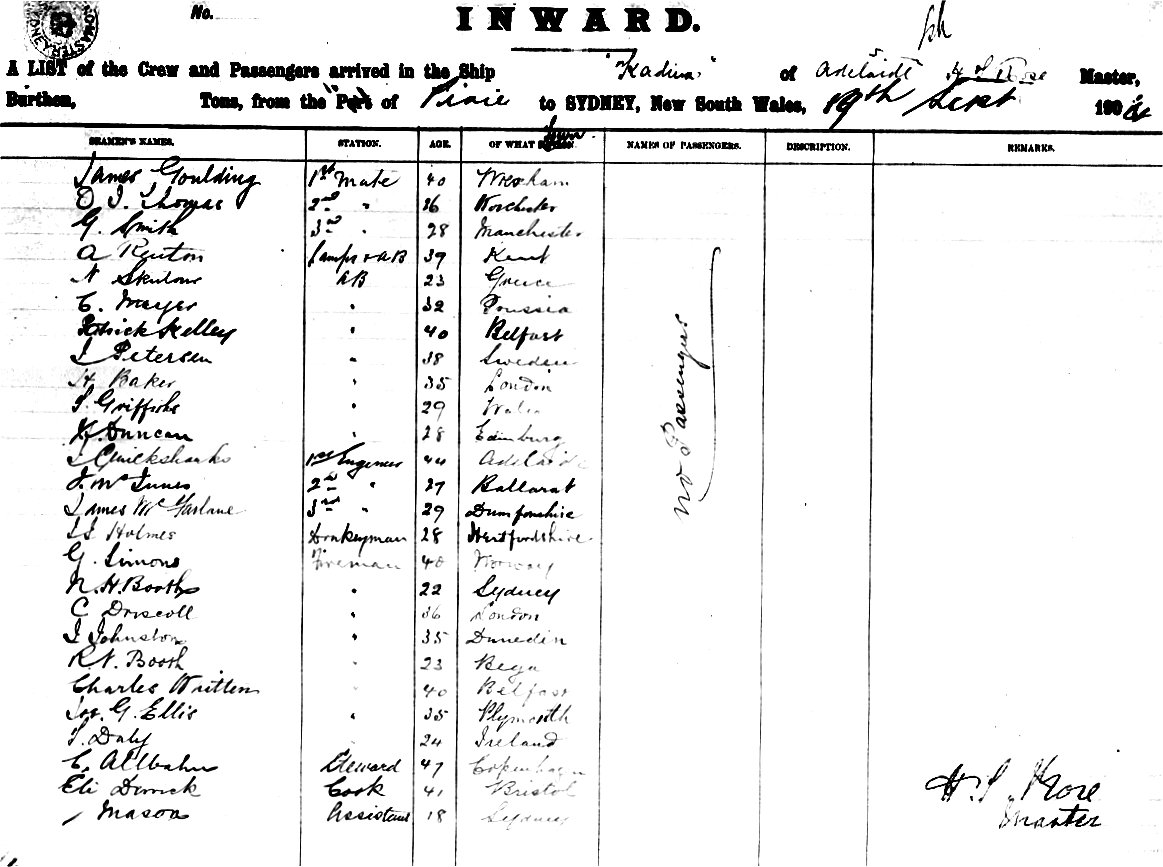 No.
INWARD.
A LIST of the Crew and Passengers arrived in the Ship "Kadina" of Adelaide Master,
Burthen, Tons, from the Port of Pirie to SYDNEY, New South Wales, 19th Sept 190
SEAMEN'S NAMES. STATION. AGE. OF WHAT Town. NAMES OF PASSENGERS. DESCRIPTION. REMARKS.
James Goulding 1st Mate 40 Wrexham
D. J. Thomas 2nd " 26 Worchester
G. Smith 3rd " 28 Manchester
A Renton Lamps & AB 39 Kent
N AB 23 Greece
C. Meyer " 32 Prussia
Patrick Kelley " 40 Belfast
J Petersen " 38 Sweden
H Baker " 35 London
J. Griffiths " 29 Wales
Duncan " 28 Edinburg
J Cruickshanks 1st Engineer 44 Adelaide
J. McInnes 2nd " 27 Ballarat
James McFarlane 3rd " 29 Dumfrishire
Holmes Donkeyman 28 Hertfordshire
G. Simons Fireman 40 Norway
N. H. Booths " 22 Sydney
C Driscoll " 36 London
J Johnston " 35 Dunedin
R. N. Booth " 23 Bega
Charles Written " 40 Belfast
Jos. G. Ellis " 35 Plymouth
J. Daly 24 Ireland
C. Allbahn Steward 47 Copenhagen
Eli Derrick Cook 41 Bristol
Mason Assistant 18 Sydney
No Passengers
H. S. Rose
Master